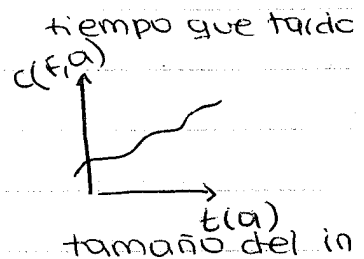 tiempo que tardo
c(f,a)
t(a)
tamaño del in